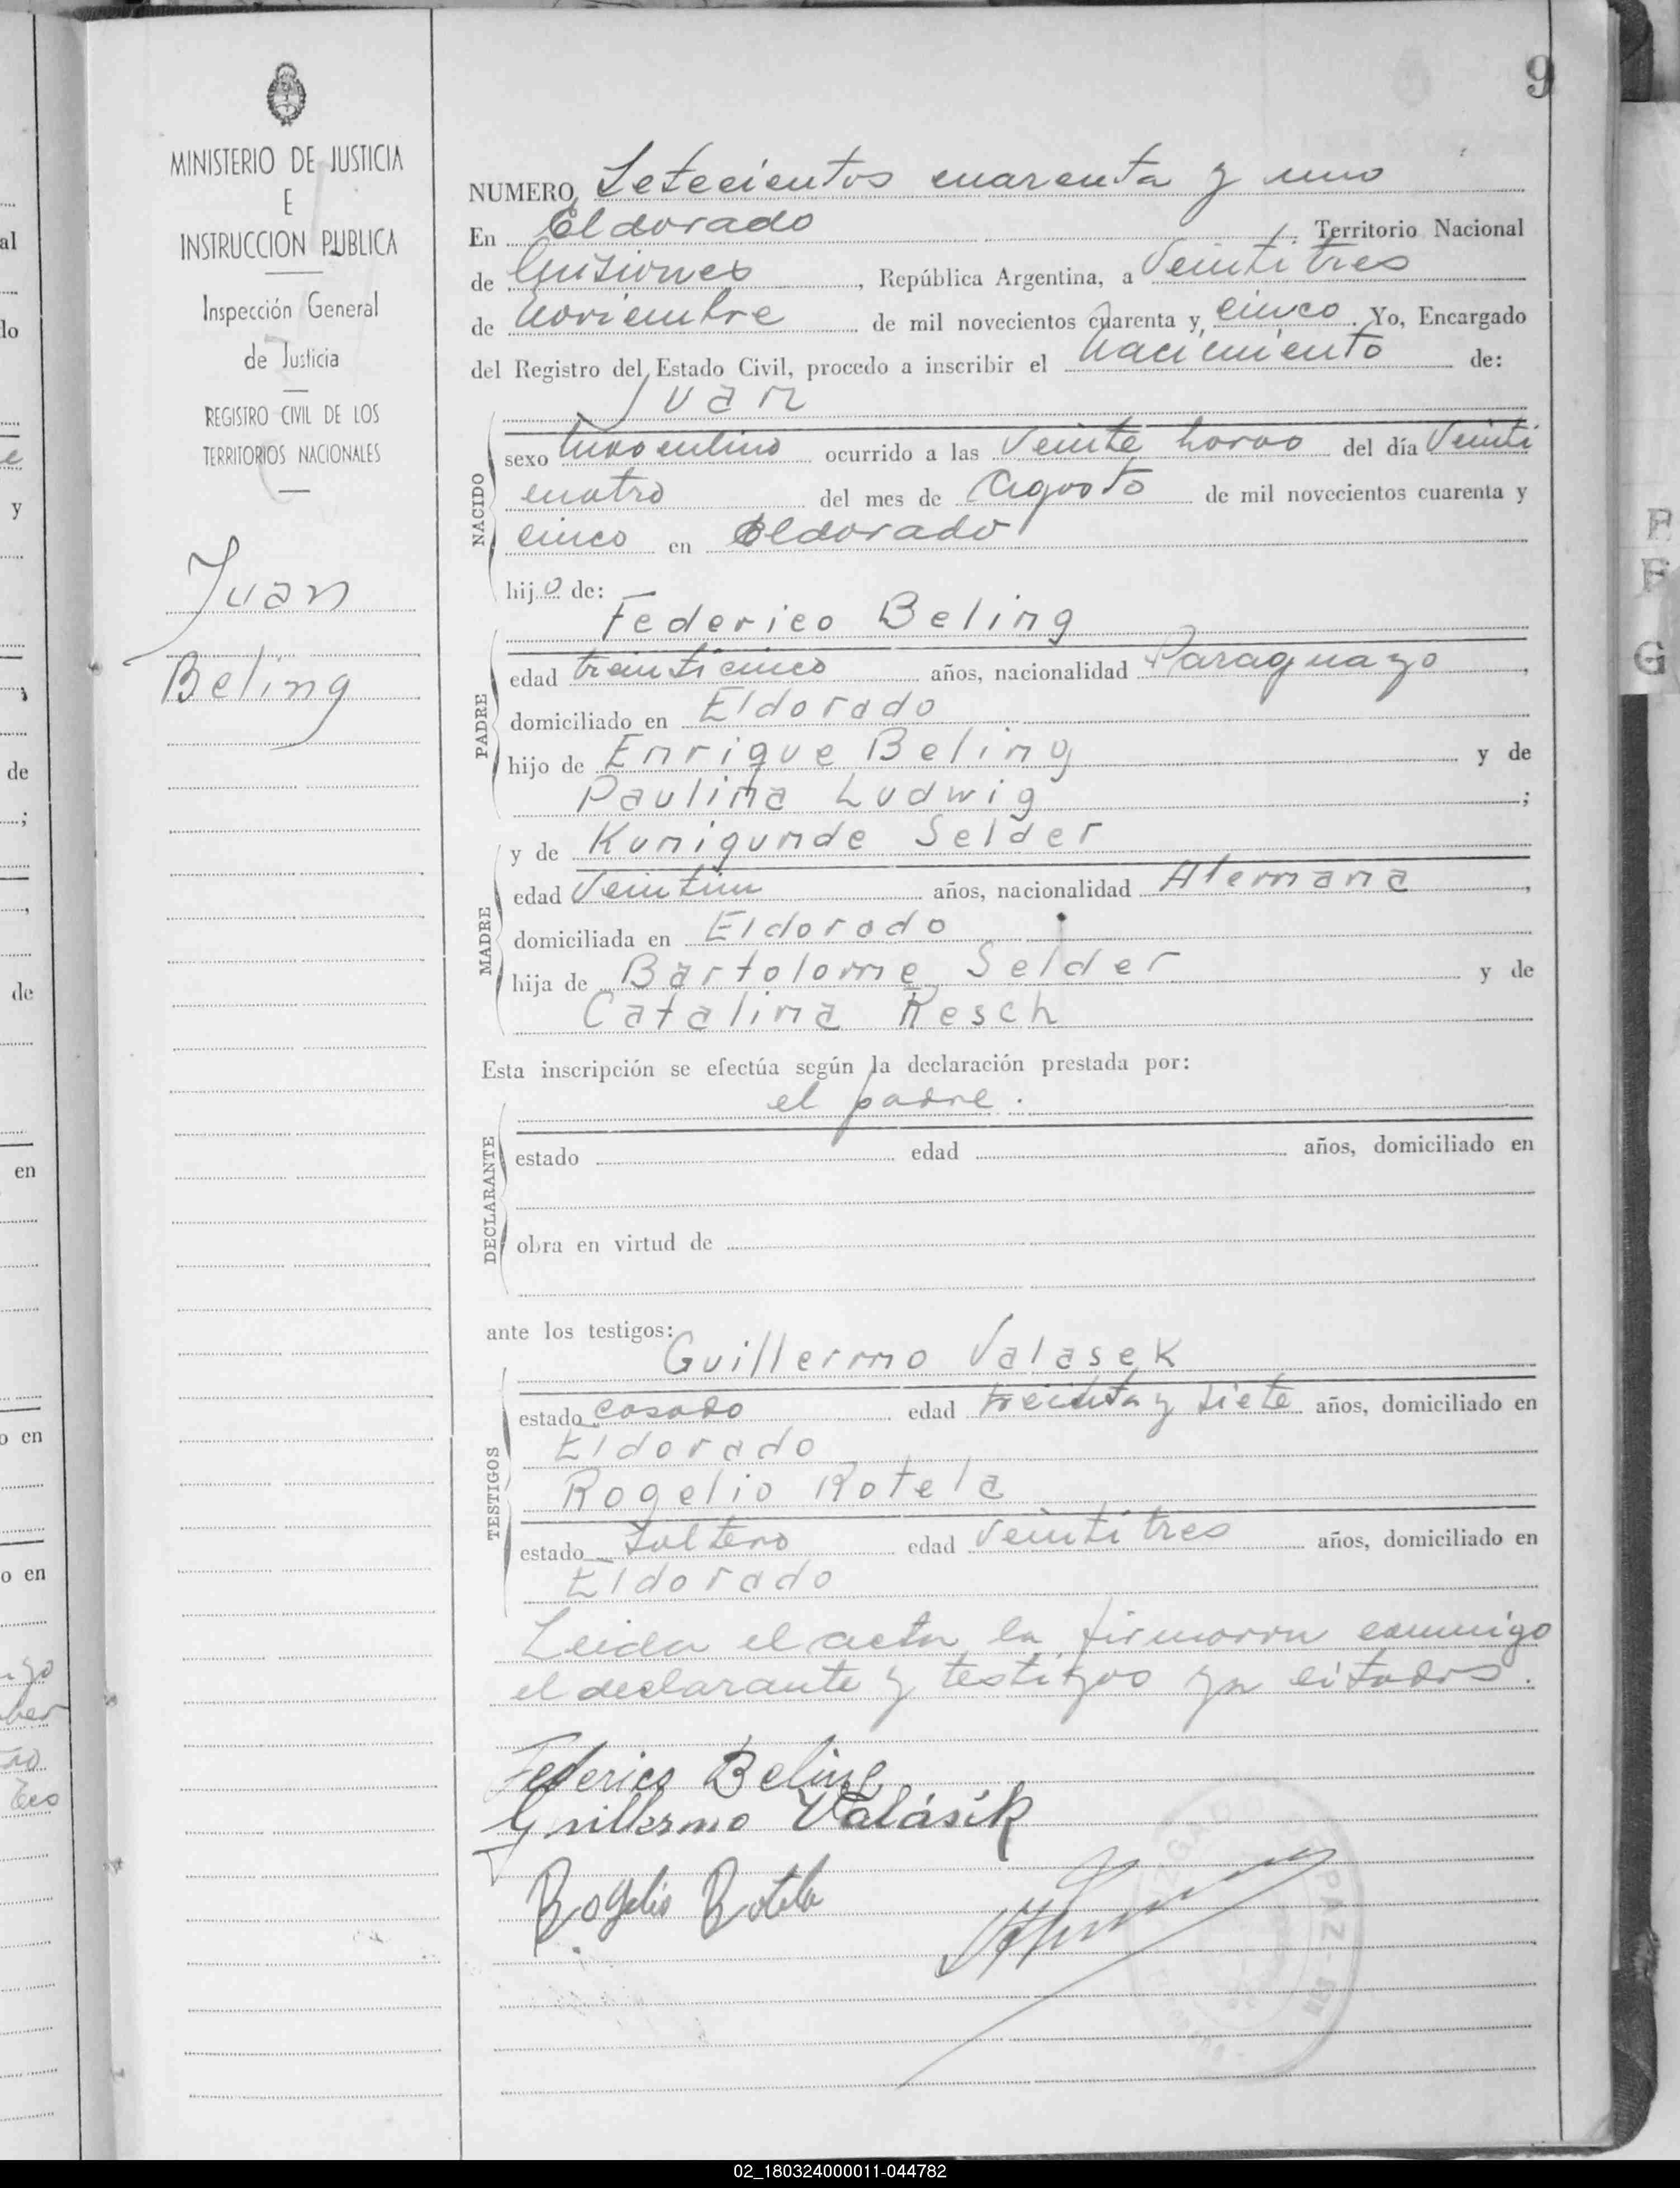 9
MINISTERIO DE JUSTICIA
E
INSTRUCCION PUBLICA
Inspección General
de Justicia
REGISTRO CIVIL DE LOS
TERRITORIOS NACIONALES
Juan
Beling
NUMERO Setecientos cuarenta y uno
En Eldorado Territorio Nacional
de Misiones, República Argentina, a Veintitres
de Noviembre de mil novecientos cuarenta y cinco. Yo, Encargado
del Registro del Estado Civil, procedo a inscribir el Nacimiento de:
Juan
NACIDO
sexo masculino ocurrido a las veinte horas del día Veinti
cuatro del mes de Agosto de mil novecientos cuarenta y
cinco en Eldorado
hijo de:
Federico Beling
PADRE
edad treinticinco años, nacionalidad Paraguayo,
domiciliado en Eldorado
hijo de Enrique Beling y de
Paulina Ludwig;
MADRE
y de Kunigunde Selder
edad Veintiun años, nacionalidad Alemana,
domiciliada en Eldorado
hija de Bartolome Selder y de
Catalina Resch
Esta inscripción se efectúa según la declaración prestada por:
el padre.
DECLARANTE
estado edad años, domiciliado en
obra en virtud de
ante los testigos:
Guillermo Valasek
TESTIGOS
estado casado edad treinta y siete años, domiciliado en
Eldorado
Rogelio Rotela
estado Soltero edad Veintitres años, domiciliado en
Eldorado
Leida el acta la firmaron conmigo
el declarante y testigos ya citados.
Federico Beling
Guillermo Valásik
Rogelio Rotela
al
lo
e
y
de
;
de
en
o en
o en
P
F
G
02_180324000011-044782